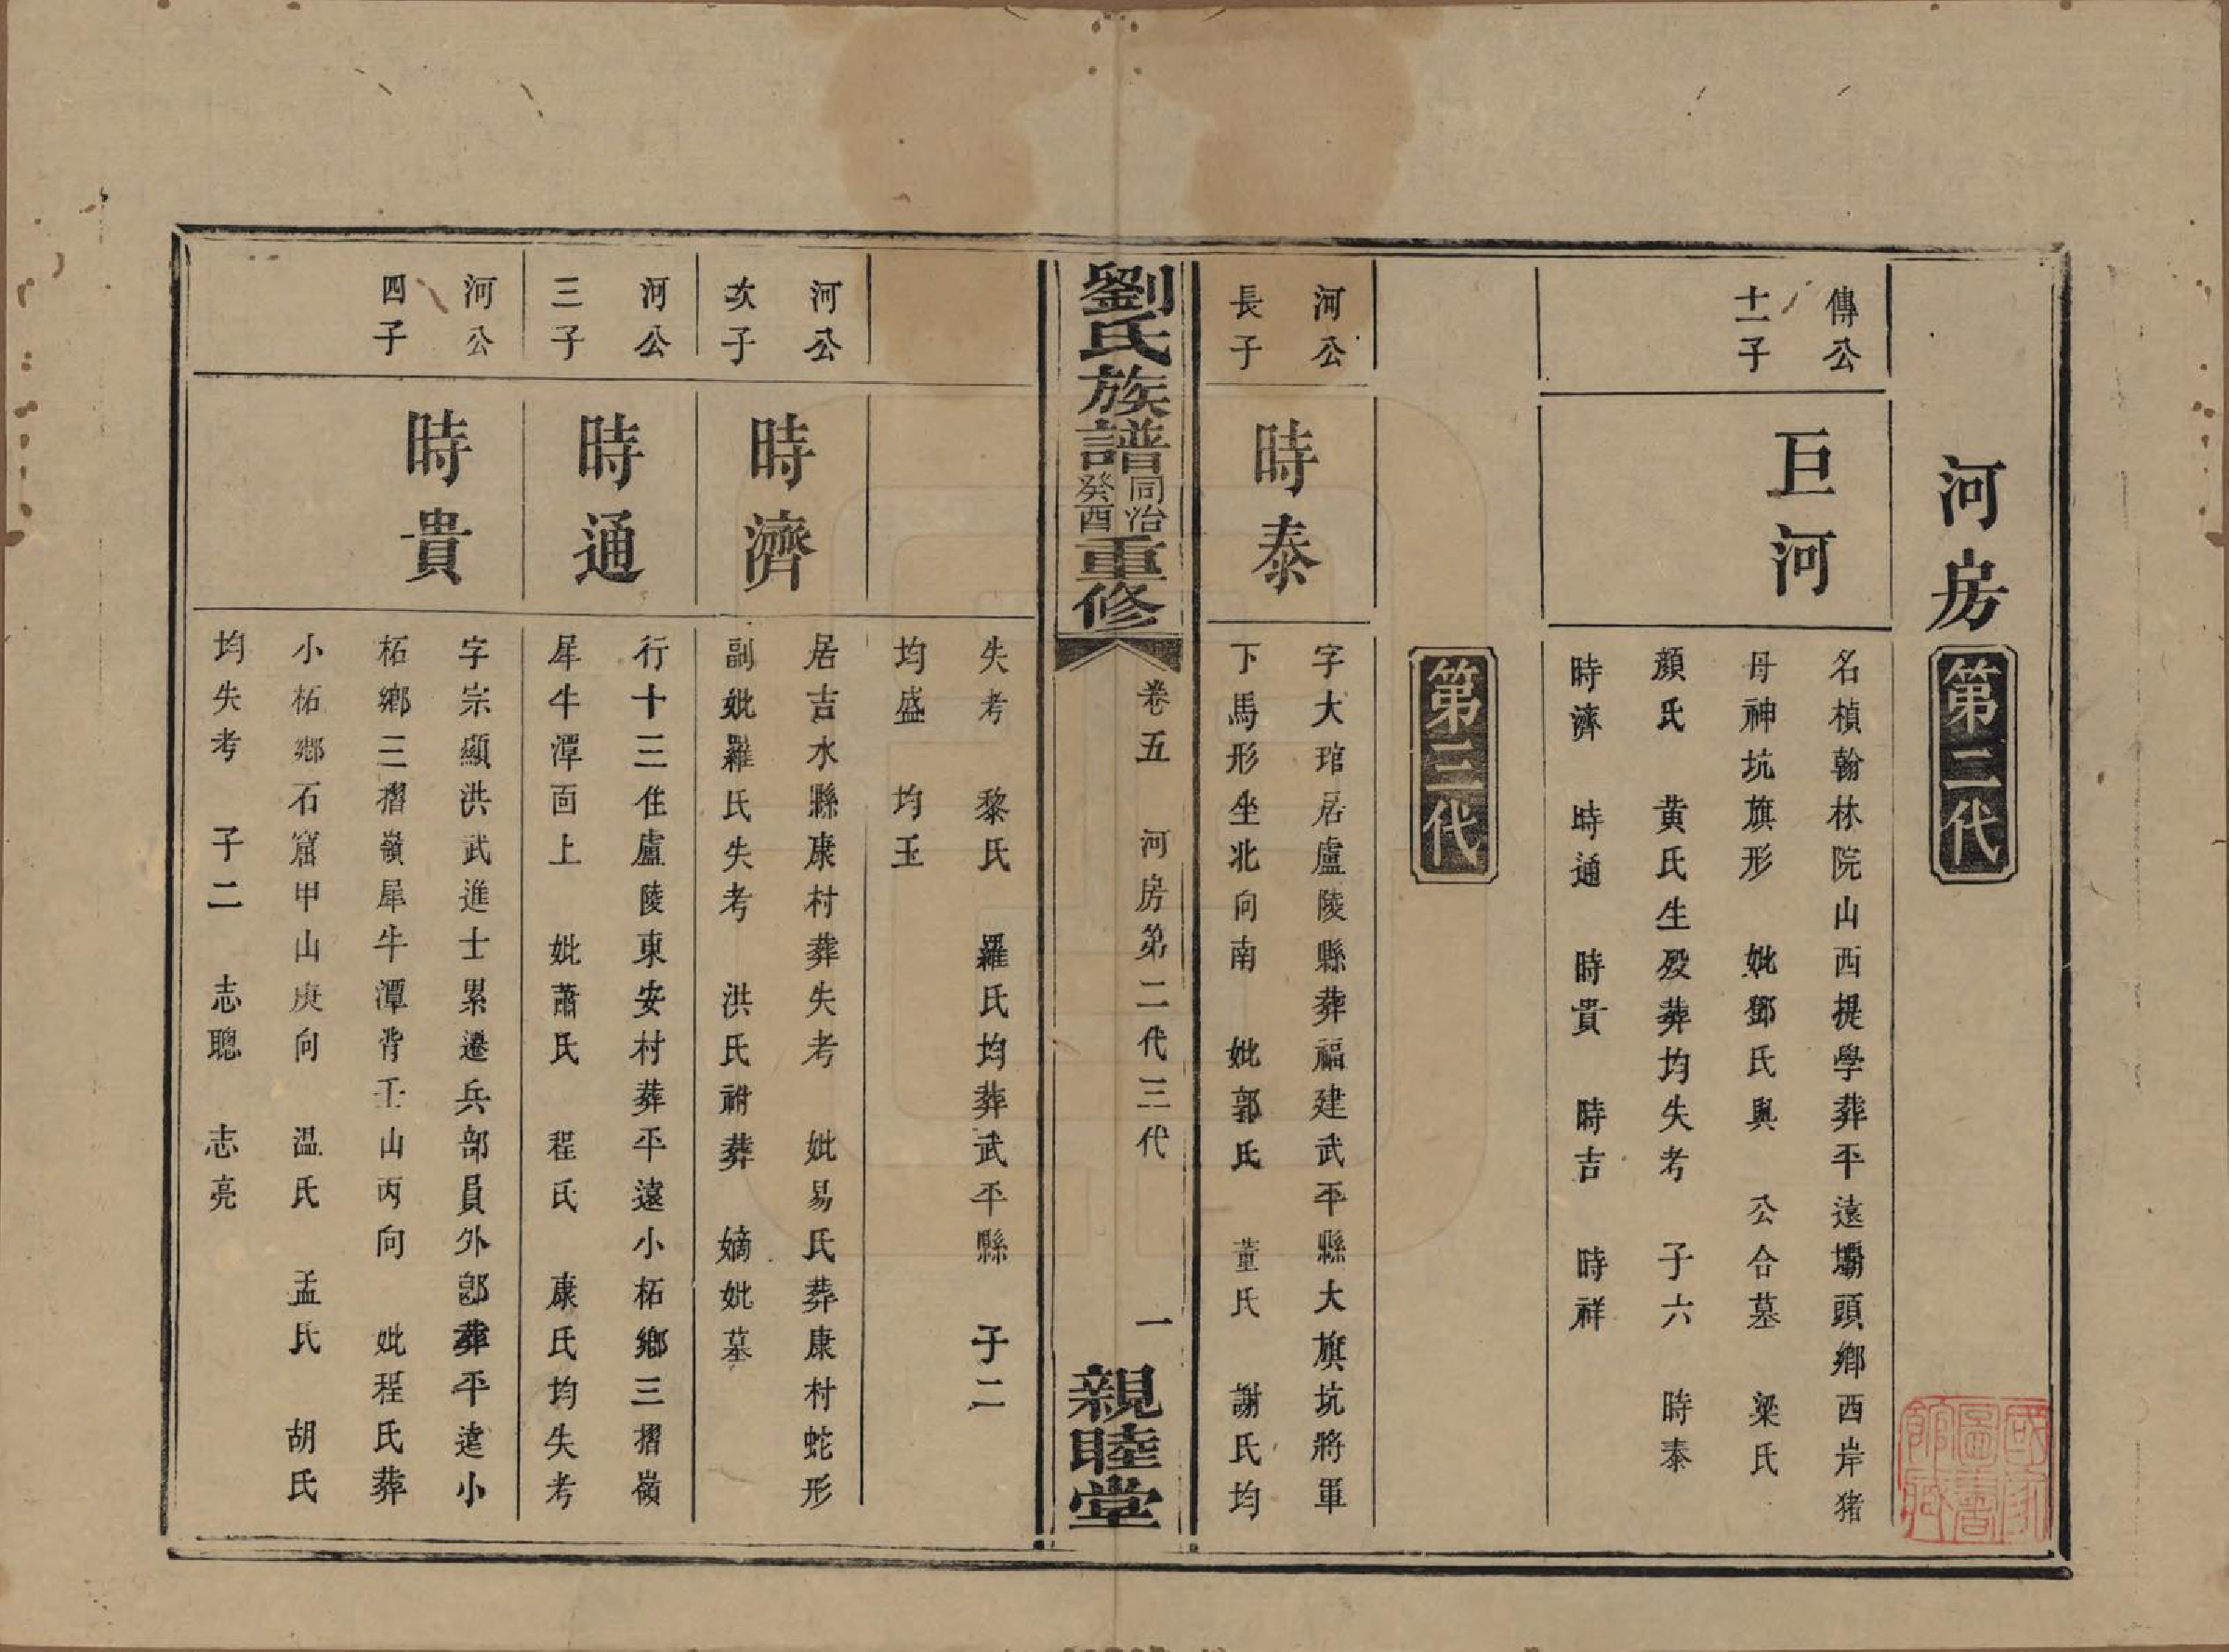 河房
第二代
傳公
十一子
巨河
名楨翰林院山西提學葬平遠壩頭鄉西岸猪
母神坑旗形　妣鄧氏與　公合墓　梁氏
顏氏　黄氏生殁葬均失考　子六　時泰
時濟　時通　時貴　時吉　時祥
第三代
河公
長子
時泰
字大琯居盧陵縣葬福建武平縣大旗坑將軍
下馬形坐北向南　妣郭氏　董氏　謝氏均
劉氏族譜同治癸酉重修
卷五　河房第二代三代　一
親睦堂
失考　黎氏　羅氏均葬武平縣　子二
均盛　均玉
河公
次子
時濟
居吉水縣康村葬失考　妣易氏葬康村蛇形
副妣羅氏失考　洪氏祔葬　嫡妣墓
河公
三子
時通
行十三住盧陵東安村葬平遠小柘鄉三摺嶺
犀牛潭面上　妣蕭氏　程氏　康氏均失考
河公
四子
時貴
字宗顯洪武進士累遷兵部員外郎葬平遠小
柘鄉三摺嶺犀牛潭背壬山丙向　妣程氏葬
小柘鄉石窟甲山庚向　温氏　孟氏　胡氏
均失考　子二　志聰　志亮
國家圖書館藏